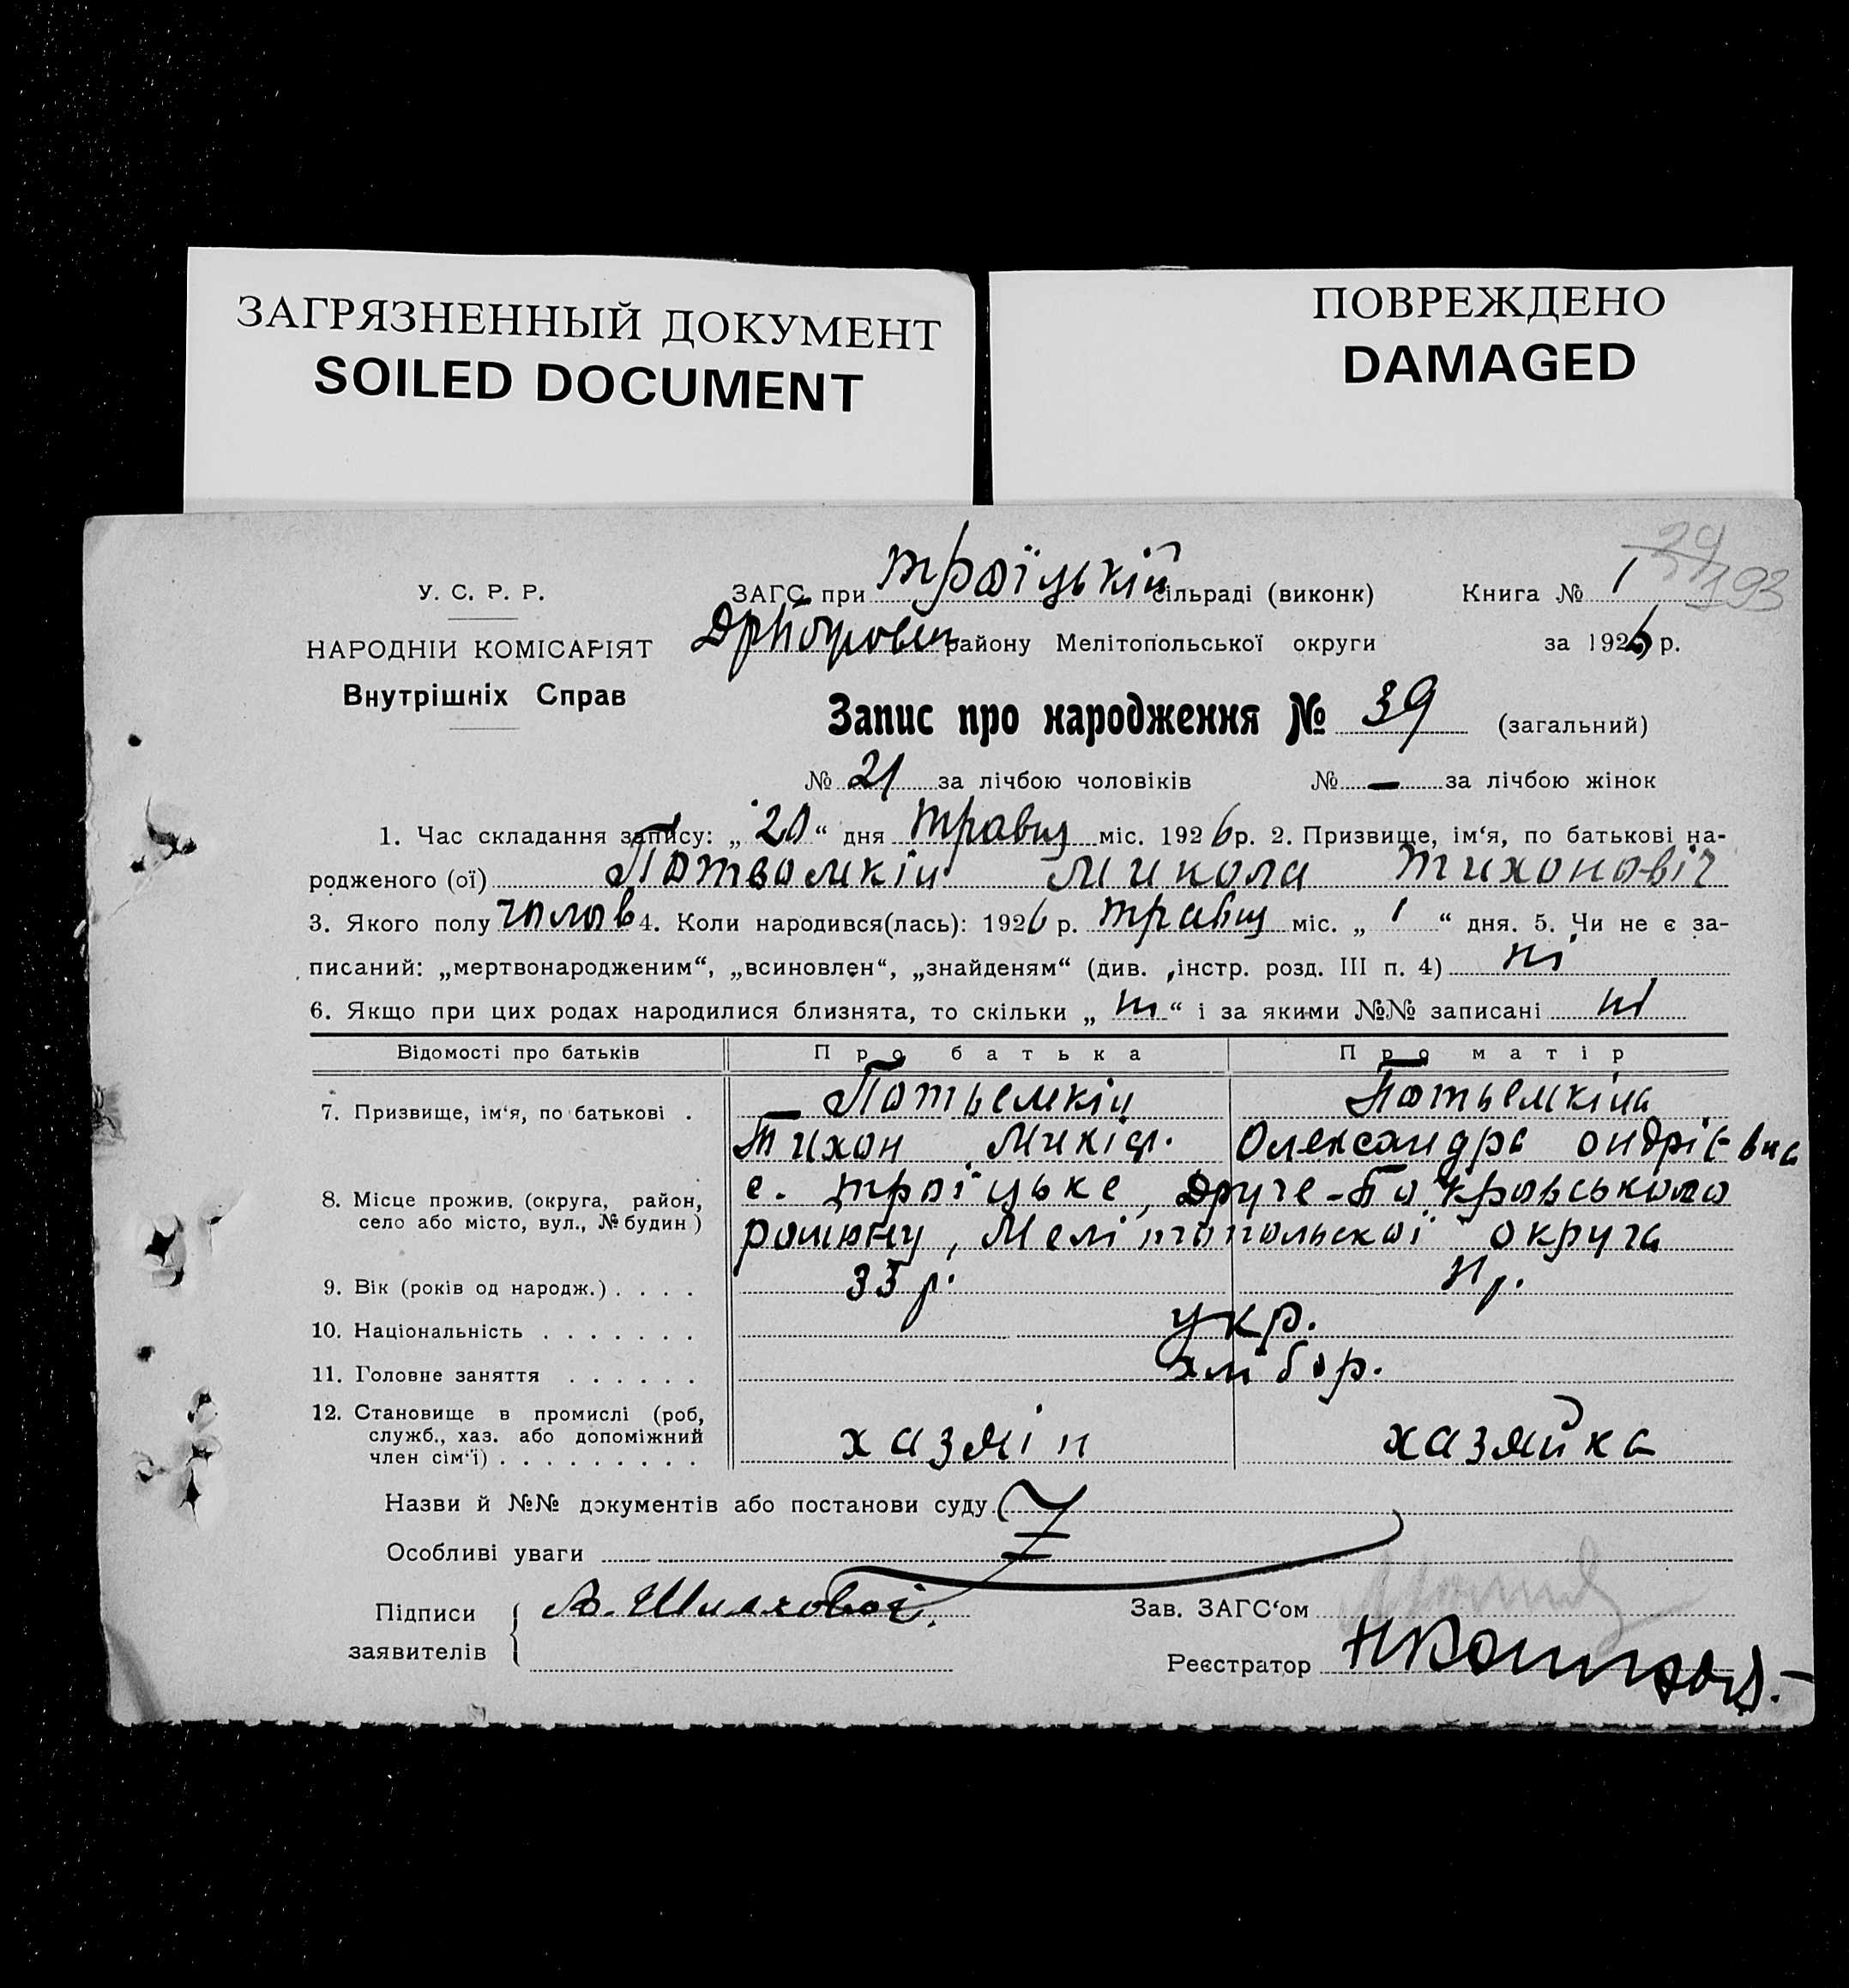 ЗАГРЯЗНЕННЫЙ ДОКУМЕНТ
SOILED DOCUMENT
ПОВРЕЖДЕНО
DAMAGED
У. С. Р. Р.
НАРОДНІЙ КОМІСАРІЯТ
Внутрішніх Справ
ЗАГС при Троїцькій сільраді (виконк) Книга № 1
району Мелітопольської округи за 1926 р.
Запис про народження № 39 (загальний)
№ 21 за лічбою чоловіків № — за лічбою жінок
1. Час складання запису: „20“ дня травця міс. 1926 р. 2. Призвище, ім‘я, по батькові на-
родженого (ої) Микола Тихоновіч
3. Якого полу чолов 4. Коли народився(лась): 1926 р. травця міс. „1“ дня. 5. Чи не є за-
писаний: „мертвонародженим“, „всиновлен“, „знайденям“ (див. інстр. розд. III п. 4) ні
6. Якщо при цих родах народилися близнята, то скільки „ні“ і за якими №№ записані ні
Відомості про батьків Про батька Про матір
7. Призвище, ім‘я, по батькові . Потьемкін Потьемкіна
Тихон Микіт. Олександра Ондрієвна
8. Місце прожив. (округа, район,
село або місто, вул., № будин)
с. Троїцьке, Друге-Покровського
району, Мелітопольскої округа
9. Вік (років од народж.) . . . . 33 р.
10. Національність . . . . . . . укр.
11. Головне заняття . . . . . . хлібор.
12. Становище в промислі (роб,
служб., хаз. або допоміжний
член сім‘ї) . . . . . . . . . хазяїн хазяйка
Назви й №№ документів або постанови суду
Особливі уваги
Підписи
заявителів
Зав. ЗАГС‘ом
Реєстратор